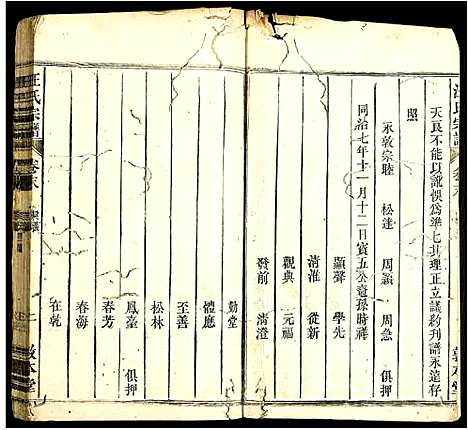 汪氏宗譜
天良不能以訛悞爲準七北理正立議約刋譜永遠存
照
永敦宗睦 松達 周穎 周急 俱押
同治七年十二月十二日寅五公裔孫時祥
顯聲 學先
清淮 從新
觀典 元福
發前 清澄
勳堂
體應
至善
松林
鳳臺 俱押
春芳
春海
在乾
汪氏宗譜
卷末
敦本堂